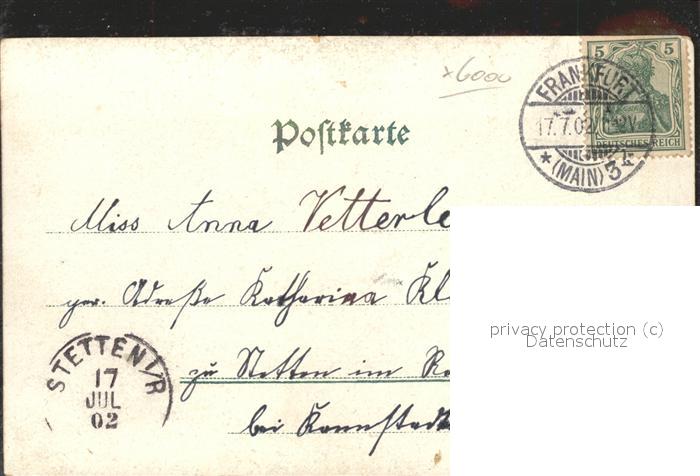 ×6000
5 5
DEUTSCHES REICH
FRANKFURT
17.7.02
* (MAIN) 3
Postkarte
Miss Anna Vetterle
per. Adreße Katharina Kl
privacy protection (c)
Datenschutz
STETTEN I/R
17
JUL
02
zu Stetten im Re
bei Kannstadt